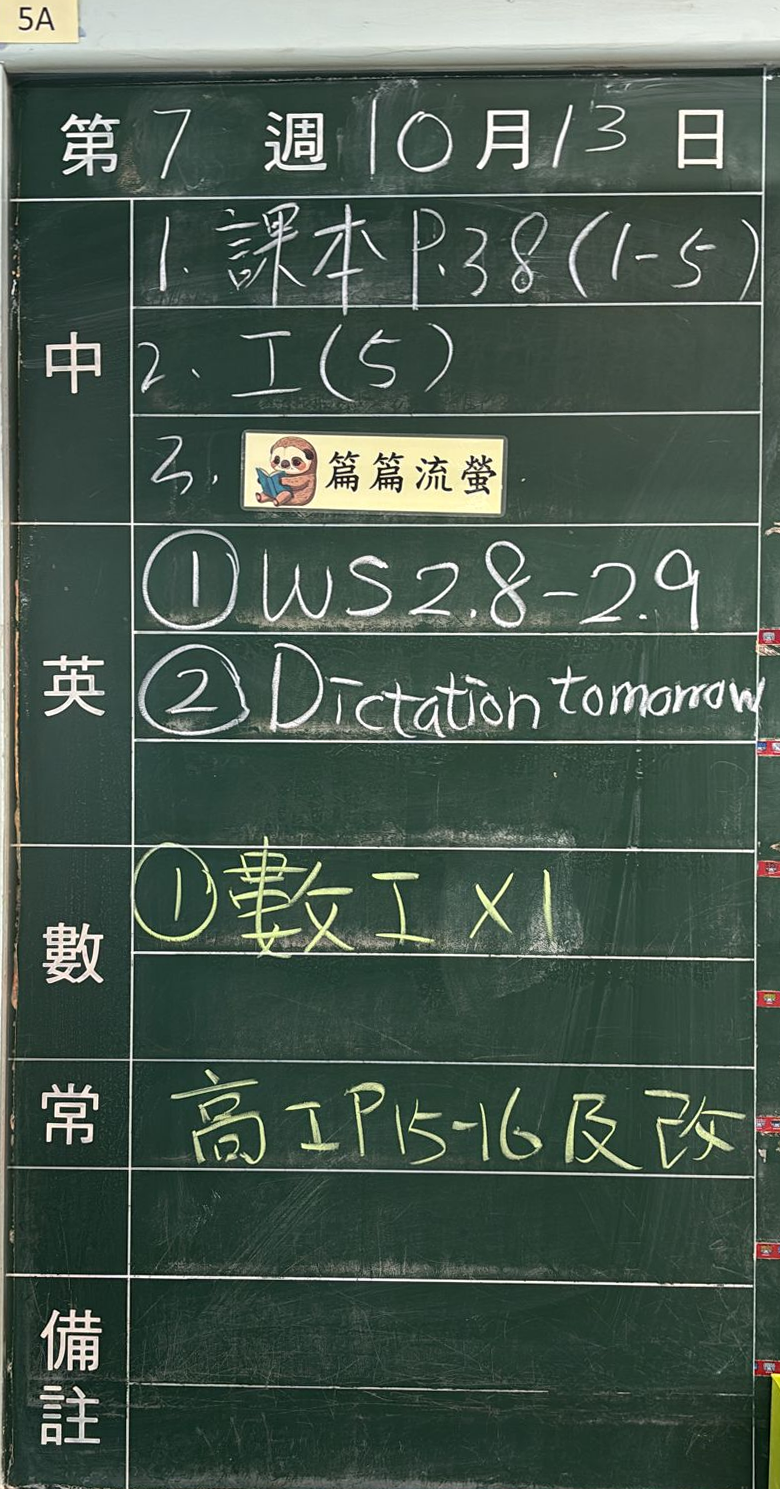 5A
第 7 週 10 月 13 日
中
1. 課本 P.38 (1-5)
2. 工(5)
3. 篇篇流螢
英
① WS 2.8-2.9
② Dictation tomorrow
數
① 數工 X1
常
高工P15-16及改
備註